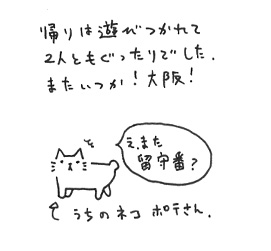 帰りは遊びつかれて
2人ともぐったりでした.
またいつか!大阪!
え、また
留守番?
うちのネコ ポテさん.